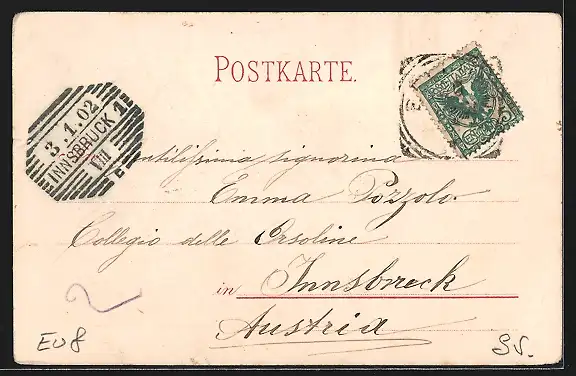 POSTKARTE.
3.1.02
INNSBRUCK 1
VIII
Gentilissima signorina
Emma Pozzolo
Collegio delle Orsoline
in Innsbruck
Austria
EU8
SV.